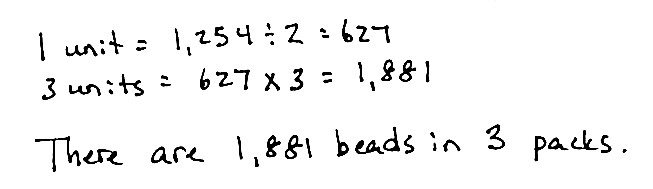 1 unit = 1,254 ÷ 2 = 627
3 units = 627 x 3 = 1,881
There are 1,881 beads in 3 packs.